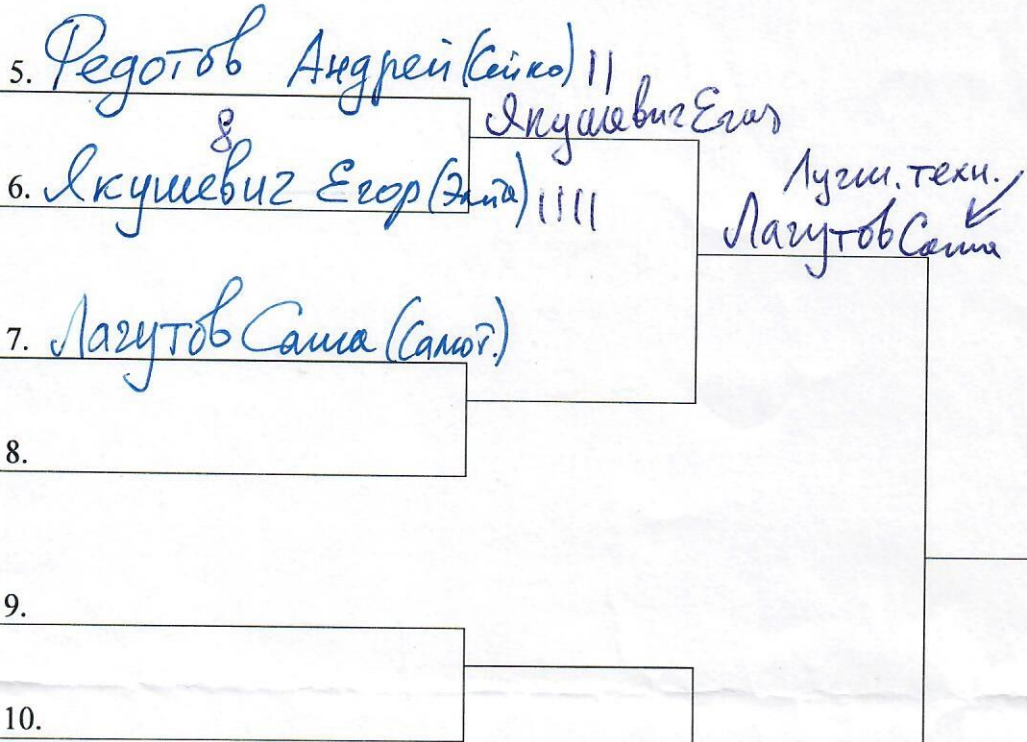 5. Федотов Андрей (Сейко) ||
Якушевич Егор
8
6. Якушевич Егор (Элита) ||||
Лучш. техн.
Лагутов Саша
7. Лагутов Саша (Самот.)
8.
9.
10.